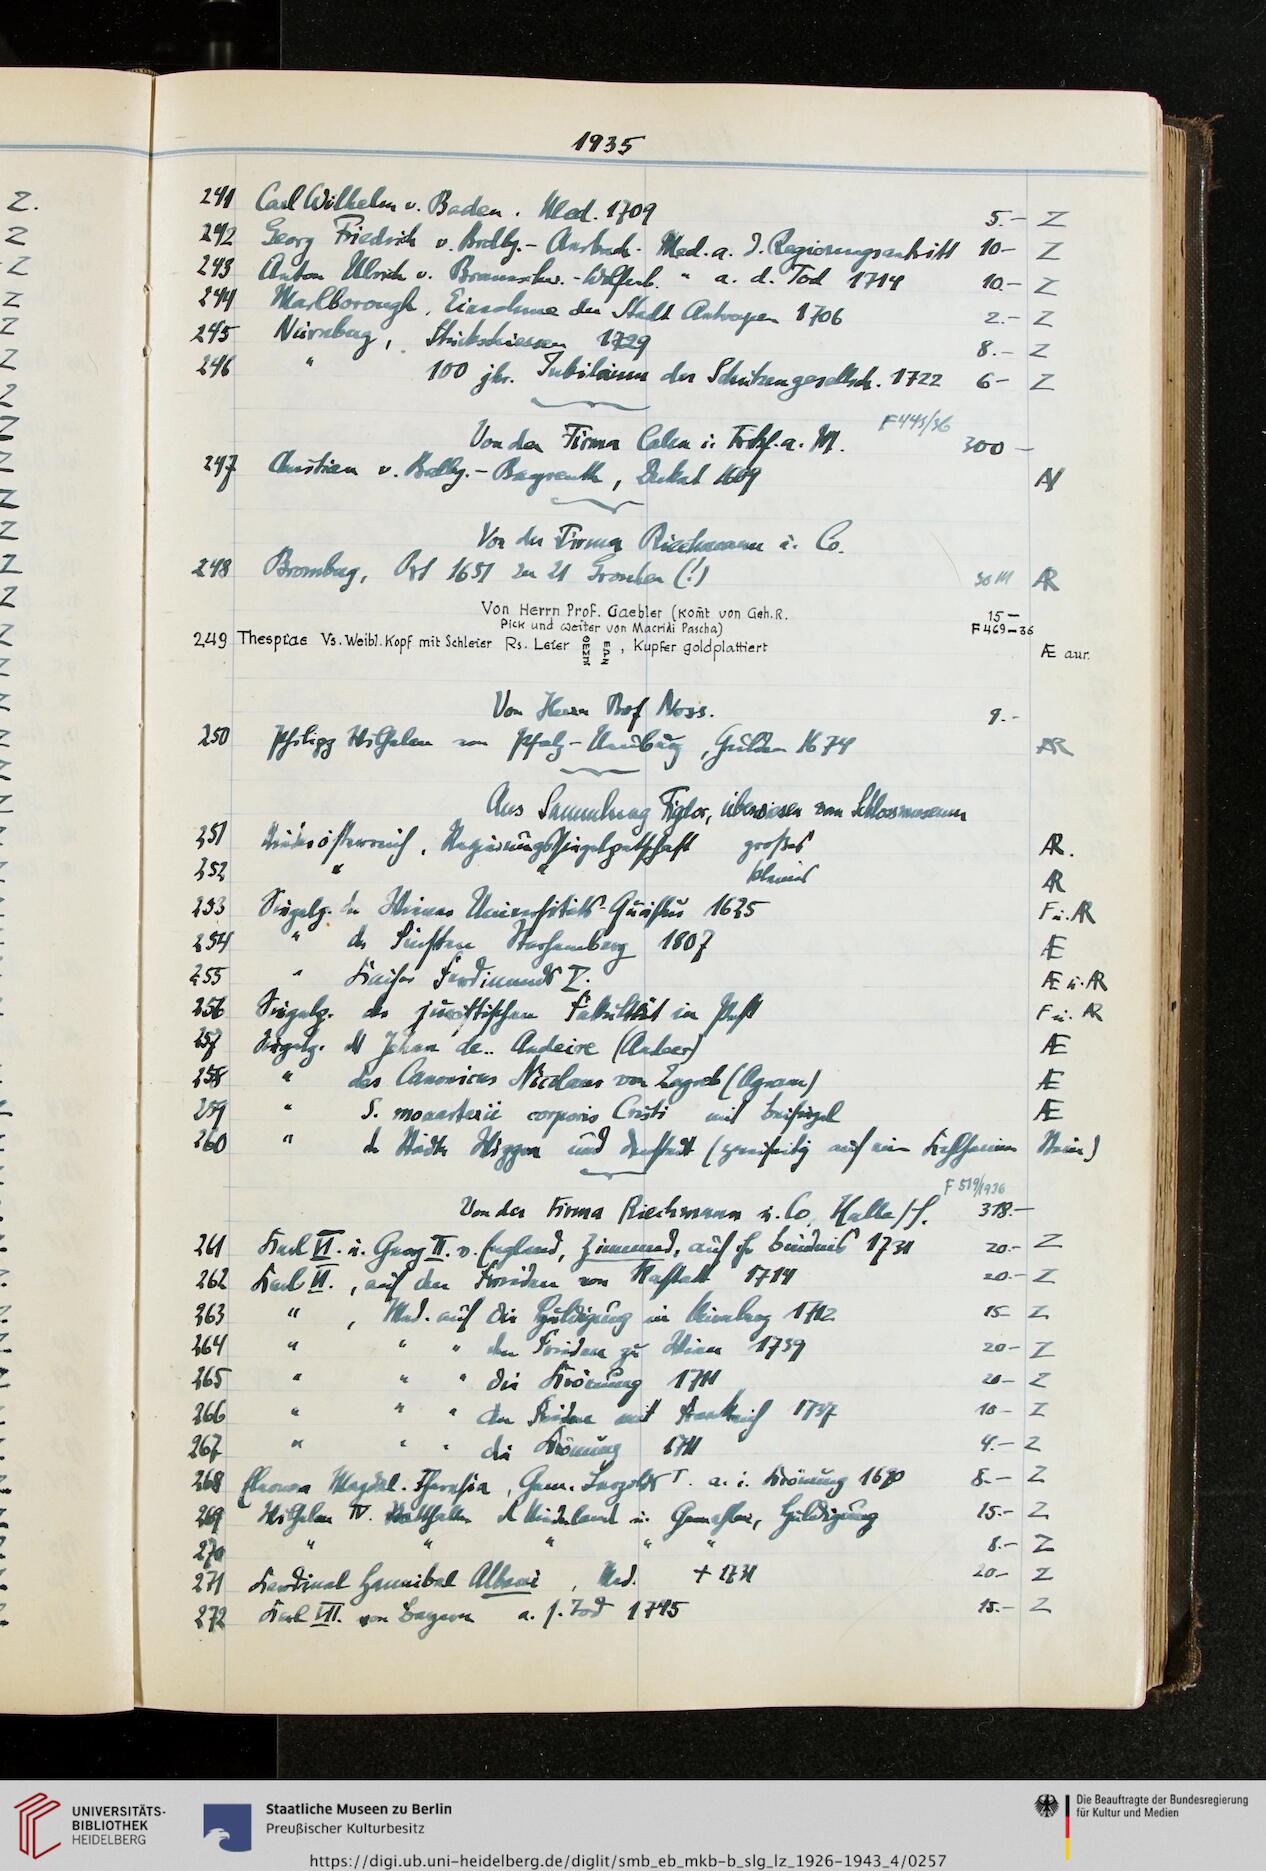 1935
241 Carl Wilhelm v. Baden. Med. 1709 5.- Z
242 Georg Friedrich v. Brdbg.- Ansbach. Med. a. d. Regierungsantritt 10- Z
243 Anton Ulrich v. Braunschw.-Wolfenb. " a. d. Tod 1714 10.- Z
244 Marlborough, Einnahme der Stadt Antwerpen 1706 2.- Z
245 Nürnberg, Stückschiessen 1729 8.- Z
246 " 100 jhr. Jubiläum der Schützengesellsch. 1722 6- Z
F 445/36
Von der Firma Cahn i. Frkf. a. M. 300 -
247 Christian v. Brdbg.- Bayreuth, Dukat 1609 AV
Von der Firma Riechmann u. Co.
248 Bromberg, Ort 1651 zu 21 Groschen (!) 30 M AR
Von Herrn Prof. Gaebler (komt von Geh. R. 15-
Pick und weiter von Macridi Pascha) F 469-36
249 Thespiae Vs. Weibl. Kopf mit Schleier Rs. Leier, Kupfer goldplattiert Æ aur.
Von Herrn Prof Noss. 9.-
250 Philipp Wilhelm von Pfalz-Neuburg, Gulden 1674 AR
Aus Sammlung Figdor, überwiesen vom Schlossmuseum
251 Niederösterreich, Regierungssiegelpetschaft großes AR.
252 " " kleines AR
253 Siegelp. der Wiener Universitäts- 1625 F u. AR
254 " des Fürsten Starhemberg 1807 Æ
255 " Kaiser Ferdinands I. Æ u. AR
256 Siegelp. der juristischen Fakultät in Pest F u. AR
257 Siegelp. d Jehan de.. Andeire (Anbeer) Æ
258 " des Canonicus Nicolaus von Zagreb (Agram) Æ
259 " S. monasterii corporis Cristi mit Beisiegel Æ
260 " der Städte und (zweiseitig auf ein Kelheimer Stein)
F 519/1936
Von der Firma Riechmann u. Co, Halle/S. 318.-
261 Karl VI. u. Georg II. v. England, Zinnmed. auf ihr Bündnis 1731 20.- Z
262 Karl VI., auf den Frieden von Rastatt 1714 20.- Z
263 " , Med. auf die Huldigung in Nürnberg 1712 15- Z
264 " " " den Frieden zu Wien 1739 20- Z
265 " " " die Krönung 1711 20- Z
266 " " " den Frieden mit Frankreich 1737 10- Z
267 " " " die Krönung 1711 4.- Z
268 Eleonora Magdal. Theresia, Gem. Leopolds I. a. i. Krönung 1690 8.- Z
269 Wilhelm IV. Statthalter d Niederland u. Gemahlin, Huldigung 15.- Z
270 " " " " " 8.- Z
271 Kardinal Hannibal Albani, Med. + 1731 20- Z
272 Karl VII. von Bayern a. s. Tod 1745 15.- Z
Z.
Z
Z
Z
Z
Z
UNIVERSITÄTS-
BIBLIOTHEK
HEIDELBERG
Staatliche Museen zu Berlin
Preußischer Kulturbesitz
Die Beauftragte der Bundesregierung
für Kultur und Medien
https://digi.ub.uni-heidelberg.de/diglit/smb_eb_mkb-b_slg_lz_1926-1943_4/0257